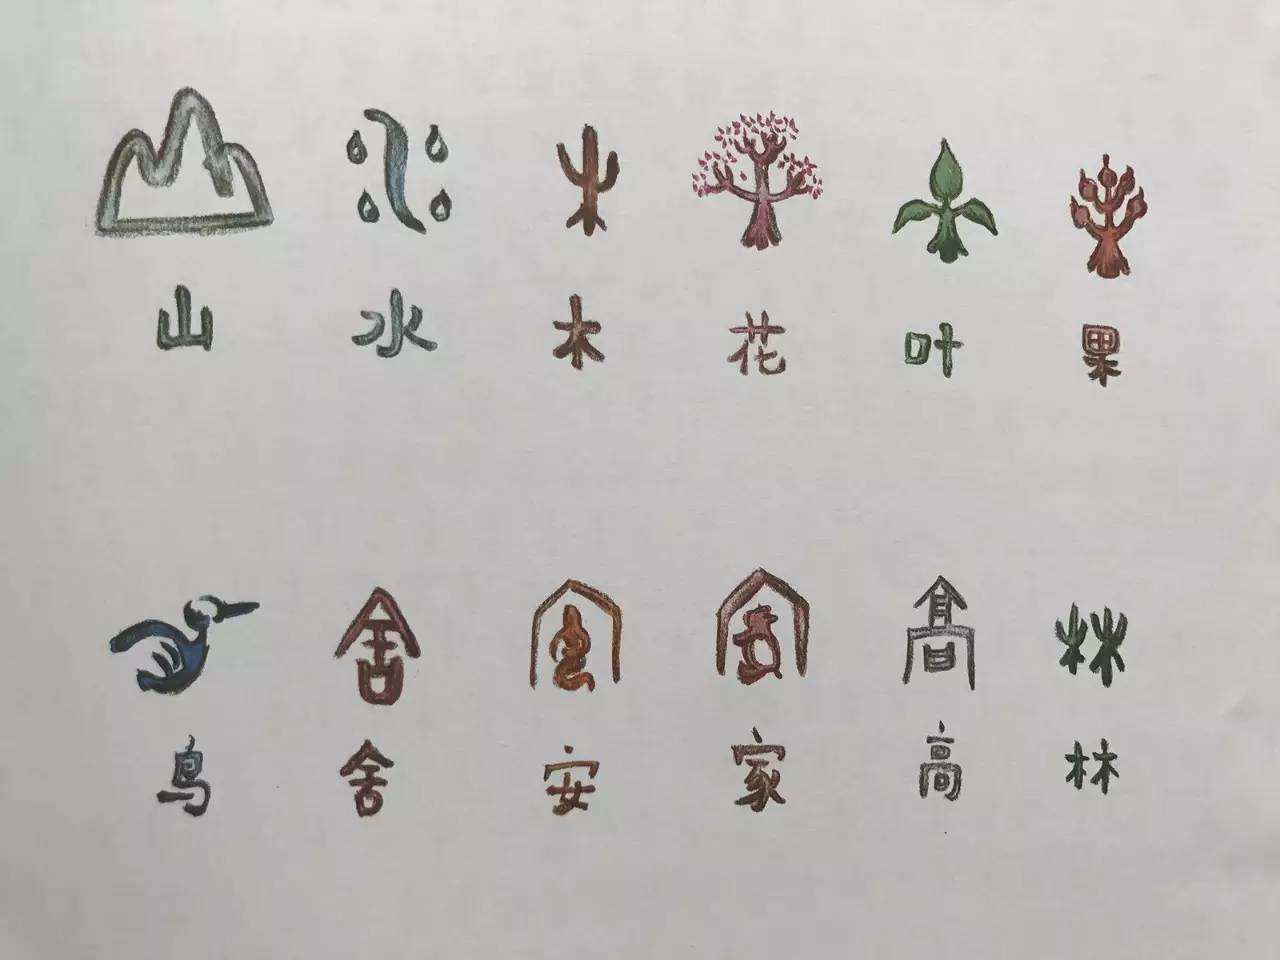 山 水 木 花 叶 果
鸟 舍 安 家 高 林